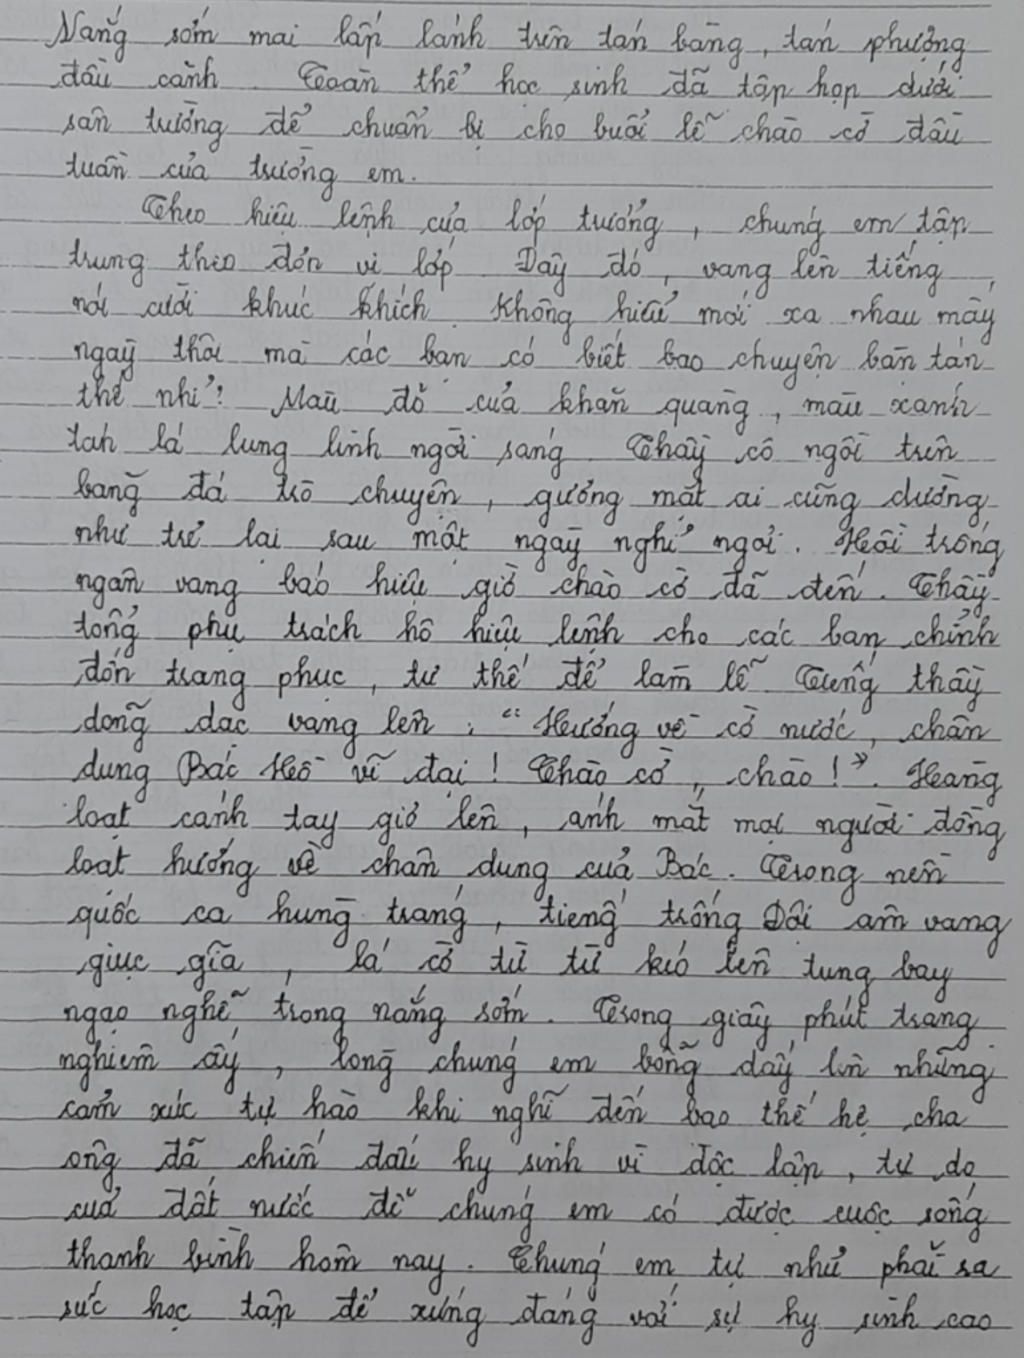 Nắng sớm mai lấp lánh trên tán bàng, tán phượng
đầu cành. Toàn thể học sinh đã tập hợp dưới
sân trường để chuẩn bị cho buổi lễ chào cờ đầu
tuần của trường em.
Theo hiệu lệnh của lớp trưởng, chúng em tập
trung theo đơn vị lớp. Đây đó, vang lên tiếng
nói cười khúc khích. Không hiểu mới xa nhau mấy
ngày thôi mà các bạn có biết bao chuyện bàn tán
thế nhỉ? Màu đỏ của khăn quàng, màu xanh
tán lá lung linh ngời sáng. Thầy cô ngồi trên
băng đá trò chuyện, gương mặt ai cũng dường
như trẻ lại sau một ngày nghỉ ngơi. Hồi trống
ngân vang báo hiệu giờ chào cờ đã đến. Thầy
tổng phụ trách hô hiệu lệnh cho các bạn chỉnh
đốn trang phục, tư thế để làm lễ. Tiếng thầy
dõng dạc vang lên: "Hướng về cờ nước, chân
dung Bác Hồ vĩ đại! Chào cờ, chào!". Hàng
loạt cánh tay giơ lên, ánh mắt mọi người đồng
loạt hướng về chân dung của Bác. Trong nền
quốc ca hùng tráng, tiếng trống Đội âm vang
giục giã, lá cờ từ từ kéo lên tung bay
ngạo nghễ trong nắng sớm. Trong giây phút trang
nghiêm ấy, lòng chúng em bỗng dấy lên những
cảm xúc tự hào khi nghĩ đến bao thế hệ cha
ông đã chiến đấu hy sinh vì độc lập, tự do
của đất nước để chúng em có được cuộc sống
thanh bình hôm nay. Chúng em tự nhủ phải ra
sức học tập để xứng đáng với sự hy sinh cao